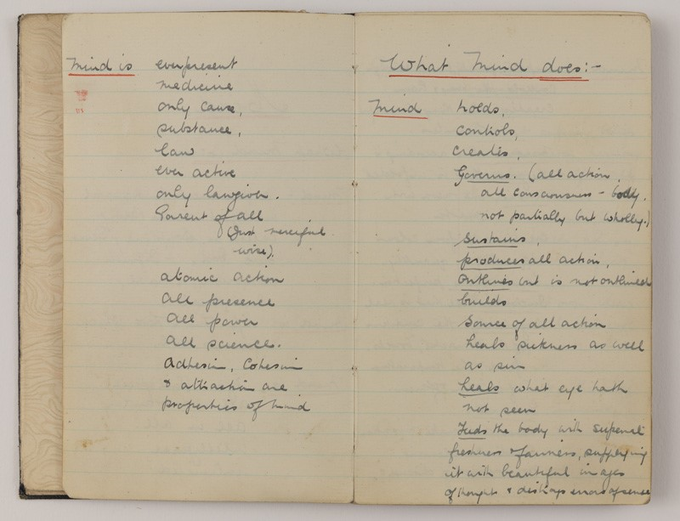 mind is everpresent
medicine
only cause,
substance,
law
ever active
only lawgiver.
Parent of all
(Just merciful
wise).
atomic action
all presence
all power
all science.
Adhesion, Cohesion
& attraction are
properties of mind
What mind does:-
mind holds,
controls,
creates,
Governs. (all action,
all consciousness - bodily,
not partially but wholly.)
Sustains,
produces all action,
Outlines but is not outlined
builds
Source of all action
heals sickness as well
as sin
heals what eye hath
not seen
Feeds the body with supernal
freshness & fairness, supplying
it with beautiful images
of thought & destroys errors of sense